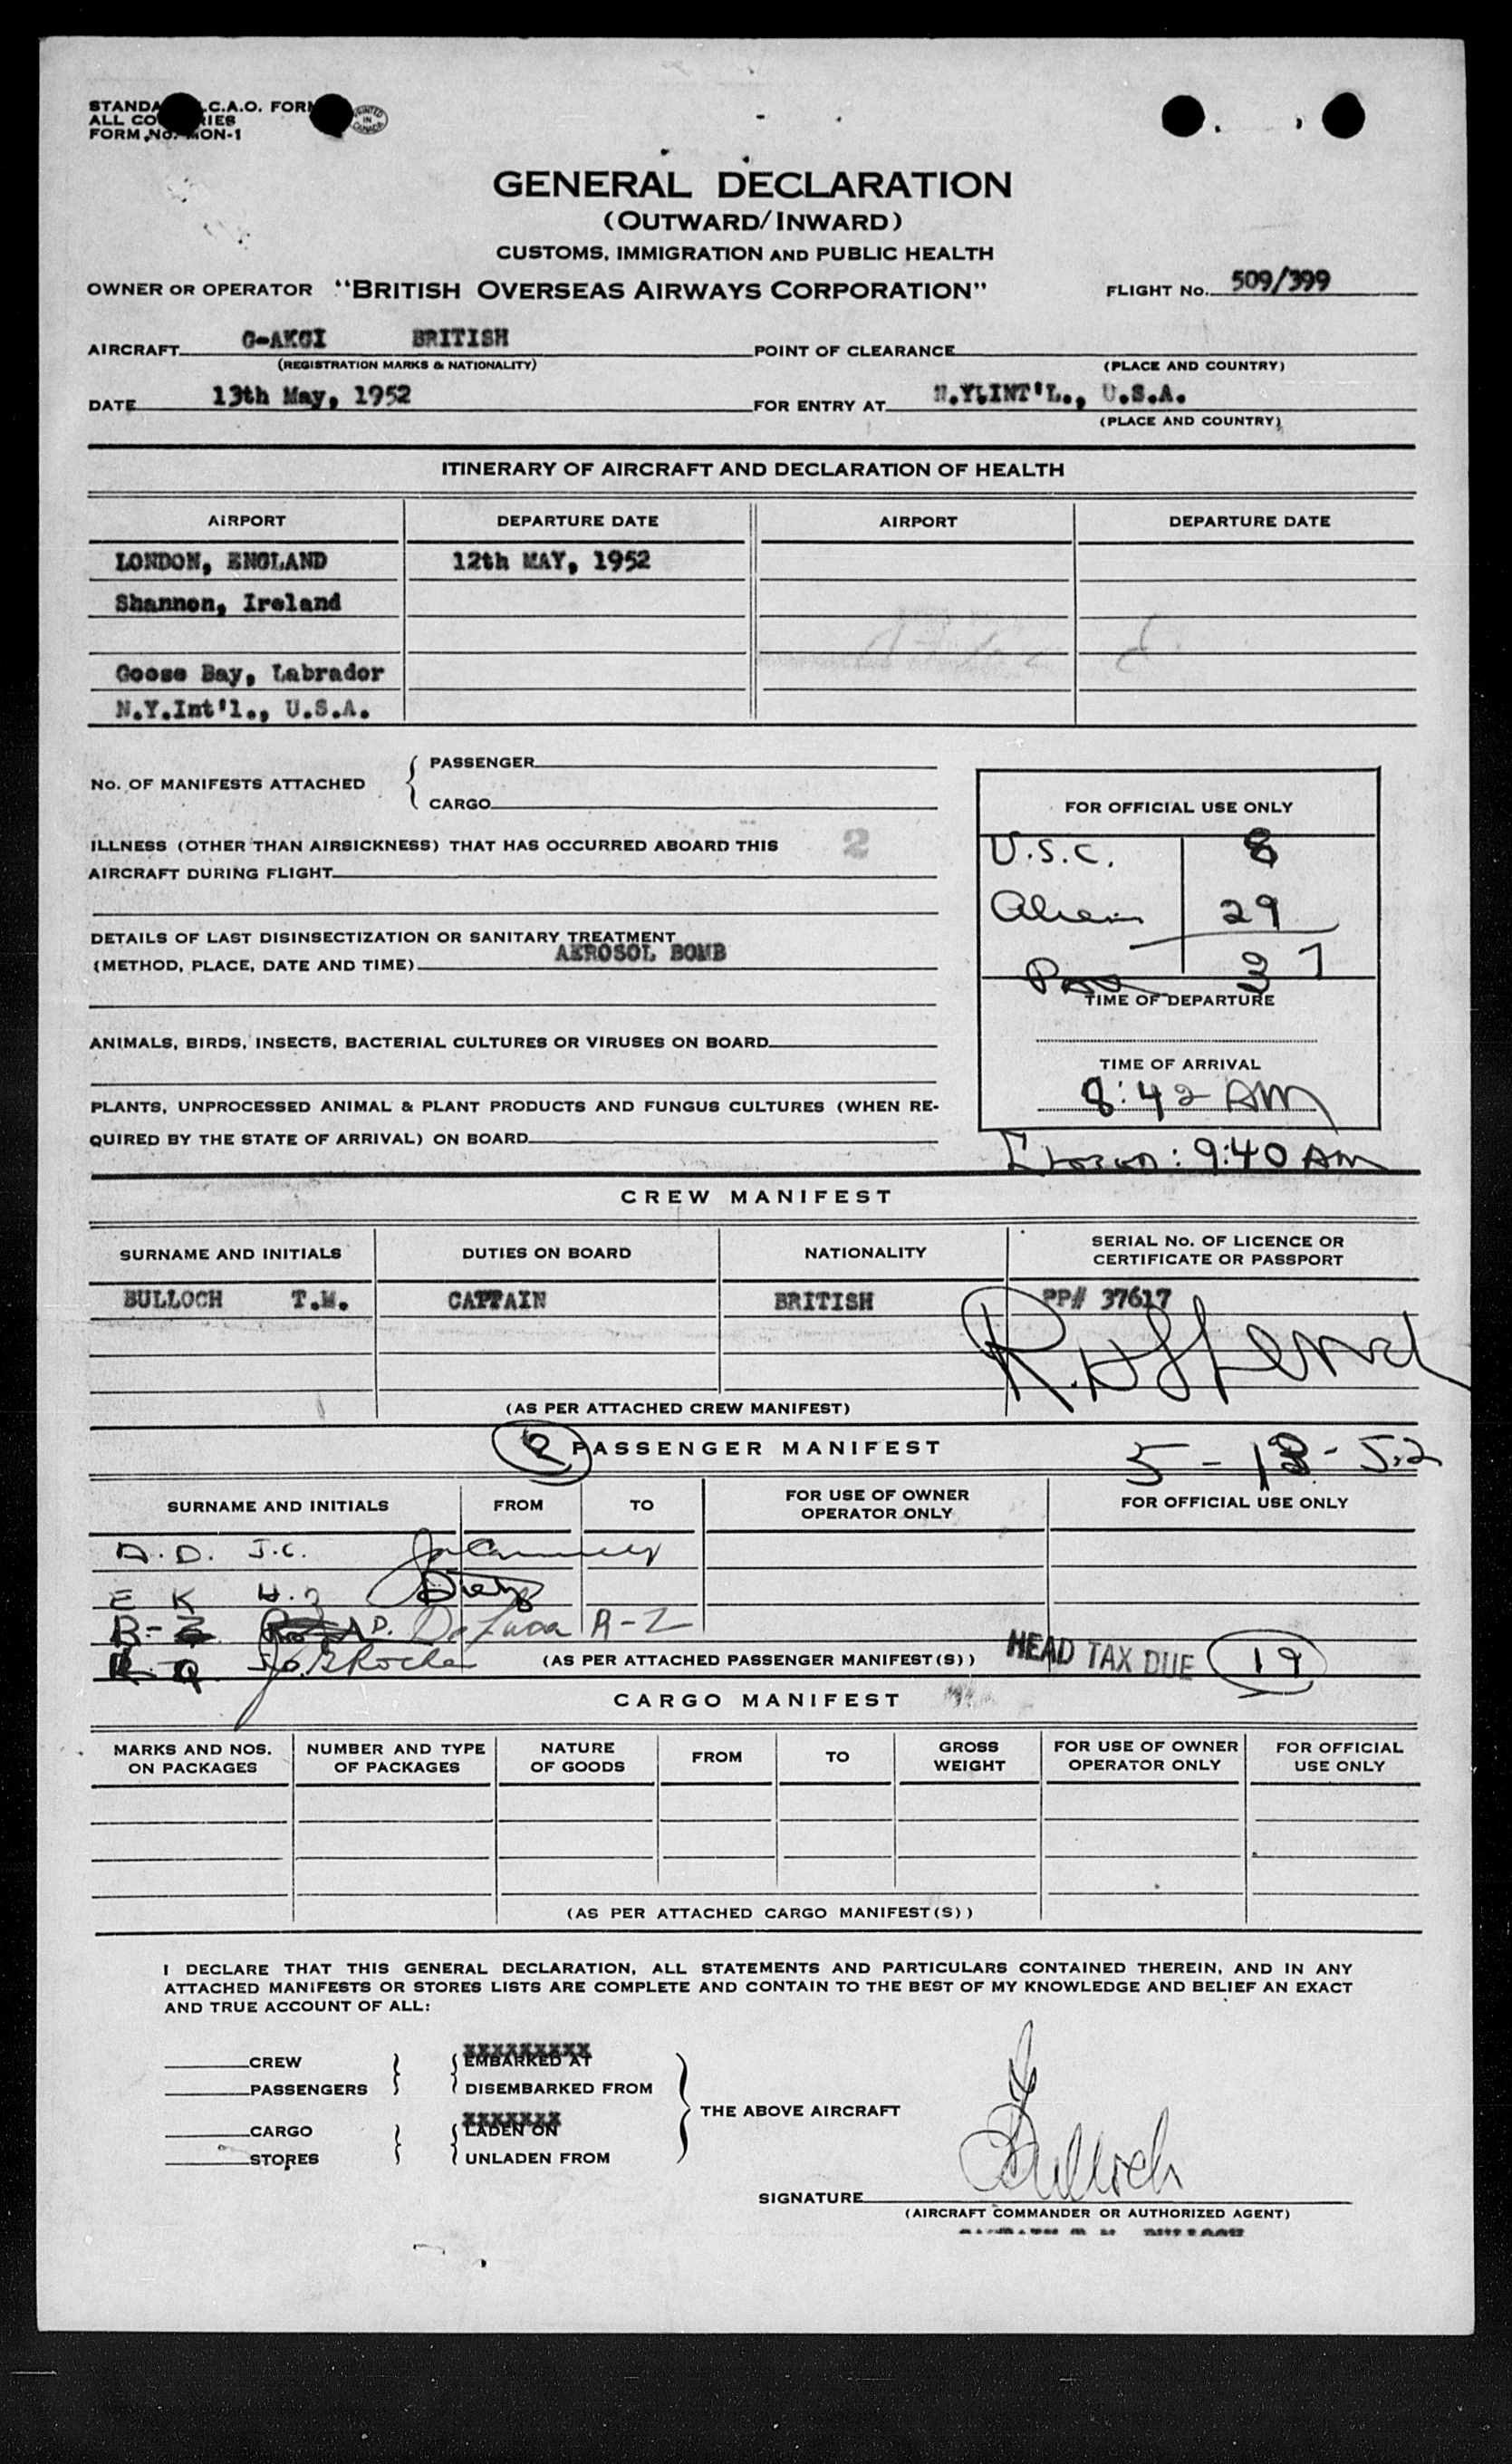 STANDA C.A.O. FOR
ALL CO RIES
FORM NO. MON-1
PRINTED IN CANADA
GENERAL DECLARATION
(OUTWARD/INWARD)
CUSTOMS, IMMIGRATION AND PUBLIC HEALTH
OWNER OR OPERATOR "BRITISH OVERSEAS AIRWAYS CORPORATION" FLIGHT No. 509/399
AIRCRAFT G-AKGI BRITISH POINT OF CLEARANCE
(REGISTRATION MARKS & NATIONALITY) (PLACE AND COUNTRY)
DATE 13th May, 1952 FOR ENTRY AT N.Y.INT'L., U.S.A.
(PLACE AND COUNTRY)
ITINERARY OF AIRCRAFT AND DECLARATION OF HEALTH
AIRPORT DEPARTURE DATE AIRPORT DEPARTURE DATE
LONDON, ENGLAND 12th MAY, 1952
Shannon, Ireland
Goose Bay, Labrador
N.Y.Int'l., U.S.A.
No. OF MANIFESTS ATTACHED { PASSENGER
CARGO
FOR OFFICIAL USE ONLY
ILLNESS (OTHER THAN AIRSICKNESS) THAT HAS OCCURRED ABOARD THIS 2
AIRCRAFT DURING FLIGHT
U.S.C. 8
Alien 29
37
DETAILS OF LAST DISINSECTIZATION OR SANITARY TREATMENT
(METHOD, PLACE, DATE AND TIME) AEROSOL BOMB
TIME OF DEPARTURE
ANIMALS, BIRDS, INSECTS, BACTERIAL CULTURES OR VIRUSES ON BOARD
TIME OF ARRIVAL
8:42 AM
PLANTS, UNPROCESSED ANIMAL & PLANT PRODUCTS AND FUNGUS CULTURES (WHEN RE-
QUIRED BY THE STATE OF ARRIVAL) ON BOARD
9:40 AM
CREW MANIFEST
SURNAME AND INITIALS DUTIES ON BOARD NATIONALITY SERIAL No. OF LICENCE OR
CERTIFICATE OR PASSPORT
BULLOCH T.M. CAPTAIN BRITISH PP# 37617
(AS PER ATTACHED CREW MANIFEST)
2 PASSENGER MANIFEST 5-13-52
SURNAME AND INITIALS FROM TO FOR USE OF OWNER
OPERATOR ONLY FOR OFFICIAL USE ONLY
A.D. J.C.
E K
B- De Luca R-Z
(AS PER ATTACHED PASSENGER MANIFEST(S)) HEAD TAX DUE 19
CARGO MANIFEST
MARKS AND NOS.
ON PACKAGES NUMBER AND TYPE
OF PACKAGES NATURE
OF GOODS FROM TO GROSS
WEIGHT FOR USE OF OWNER
OPERATOR ONLY FOR OFFICIAL
USE ONLY
(AS PER ATTACHED CARGO MANIFEST(S))
I DECLARE THAT THIS GENERAL DECLARATION, ALL STATEMENTS AND PARTICULARS CONTAINED THEREIN, AND IN ANY
ATTACHED MANIFESTS OR STORES LISTS ARE COMPLETE AND CONTAIN TO THE BEST OF MY KNOWLEDGE AND BELIEF AN EXACT
AND TRUE ACCOUNT OF ALL:
CREW } { EMBARKED AT
PASSENGERS DISEMBARKED FROM
THE ABOVE AIRCRAFT
CARGO } { LADEN ON
STORES UNLADEN FROM
SIGNATURE Bulloch
(AIRCRAFT COMMANDER OR AUTHORIZED AGENT)